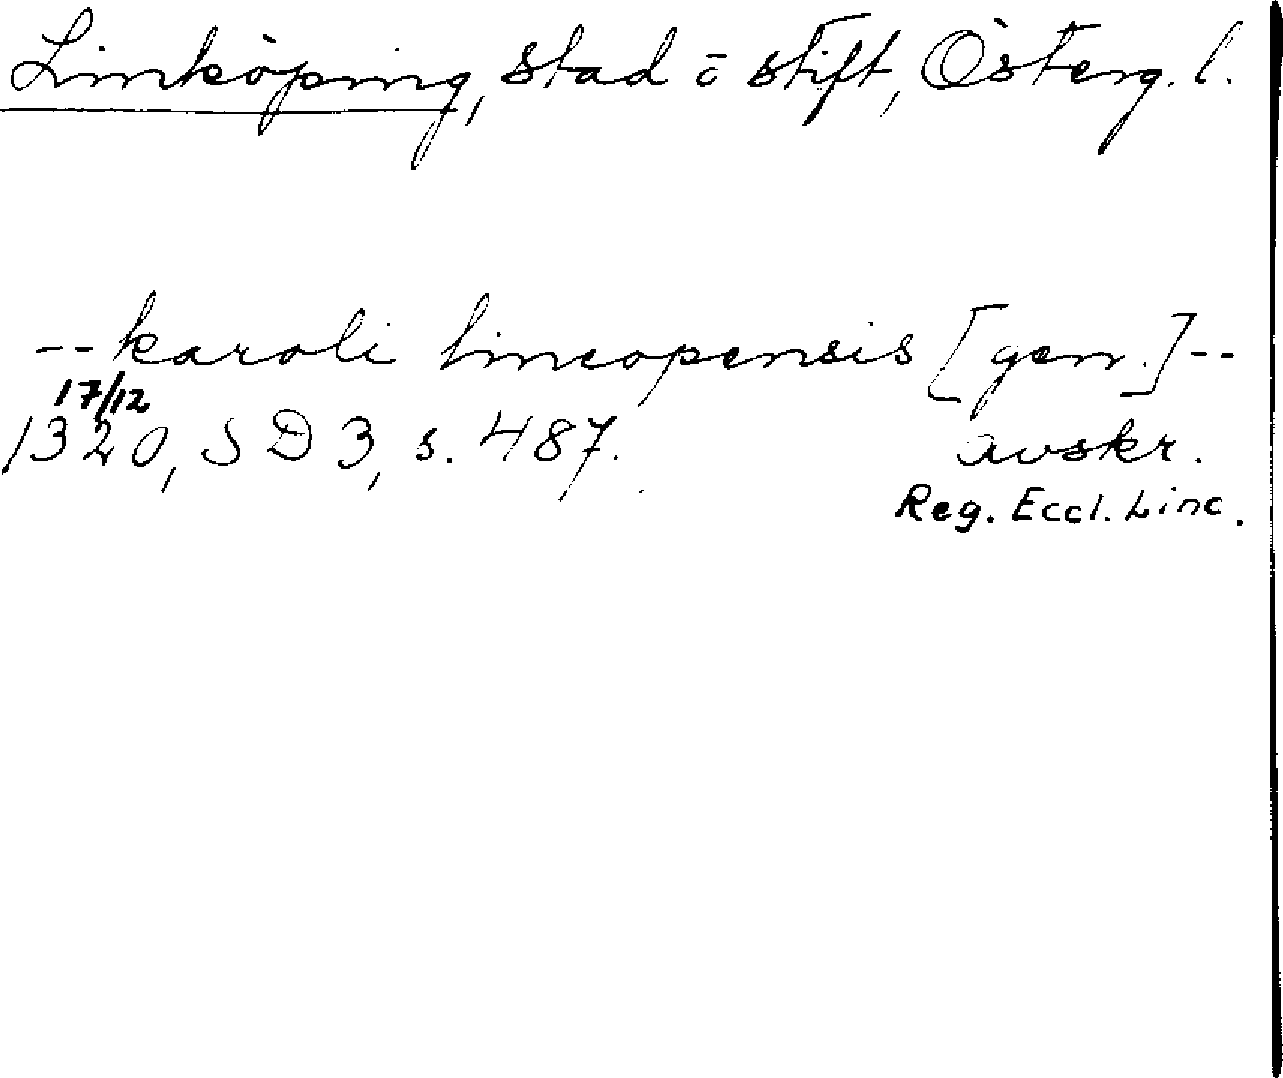 Linköping, stad o stift, Österg. l.
--karoli lincopensis [gen.]--
17/12
1320, SD 3, s. 487. avskr.
Reg. Eccl. Linc.